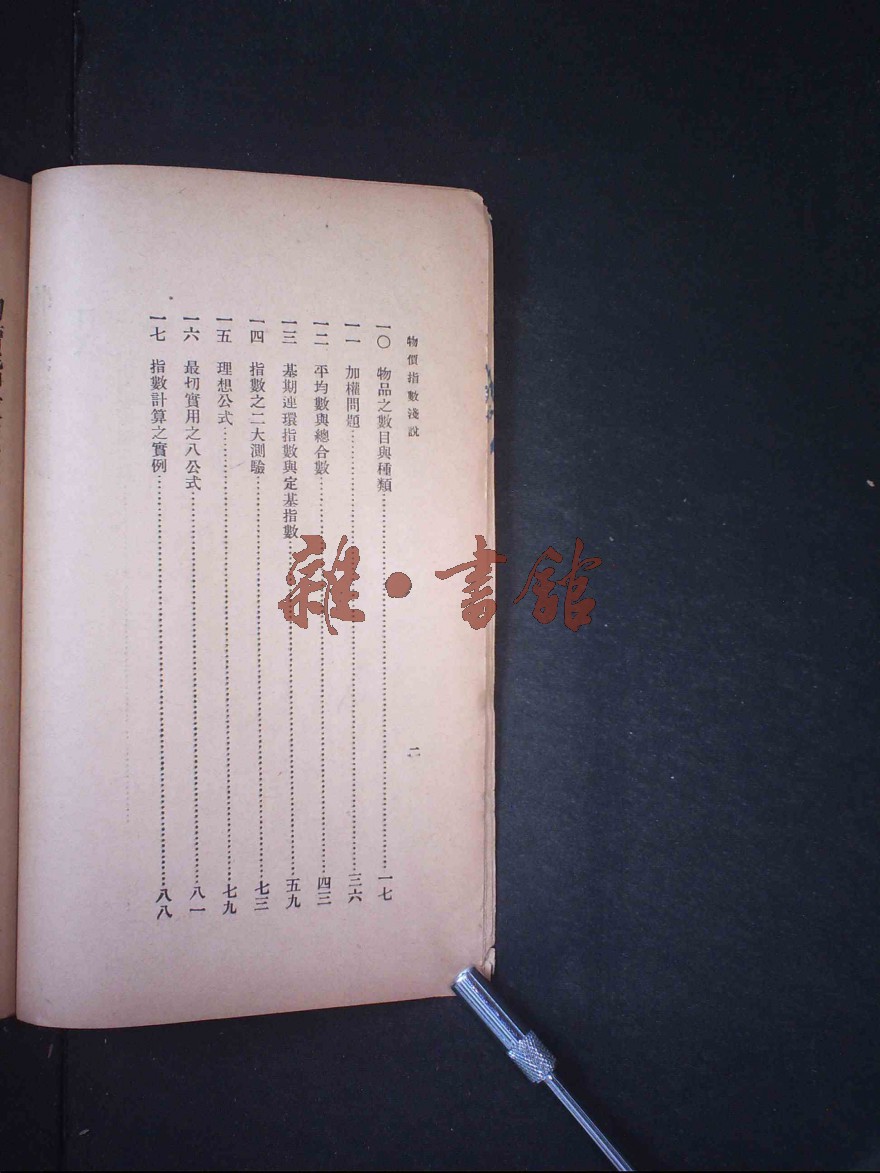 物價指數淺說
二
一〇　物品之數目與種類……一七
一一　加權問題……三六
一二　平均數與總合數……四三
一三　基期連環指數與定基指數……五九
一四　指數之二大測驗……七三
一五　理想公式……七九
一六　最切實用之八公式……八一
一七　指數計算之實例……八八
雜·書館